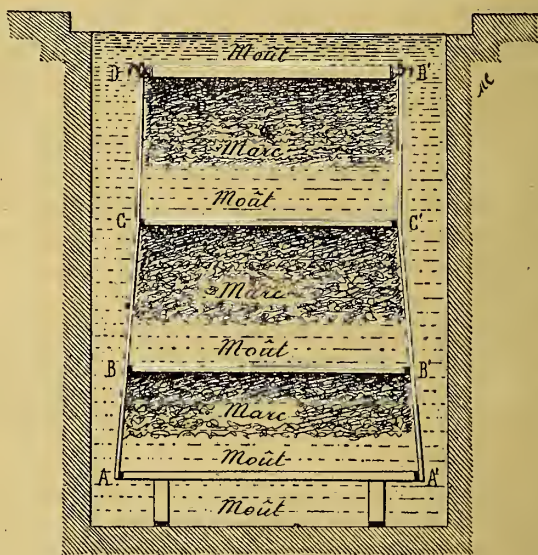 Moût
D B'
Marc
Moût
C C'
Marc
Moût
B B'
Marc
Moût
A A'
Moût